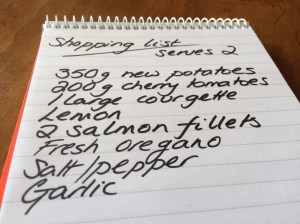 Shopping list
serves 2
350g new potatoes
200g cherry tomatoes
1 large courgette
Lemon
2 salmon fillets
Fresh oregano
Salt/pepper
Garlic